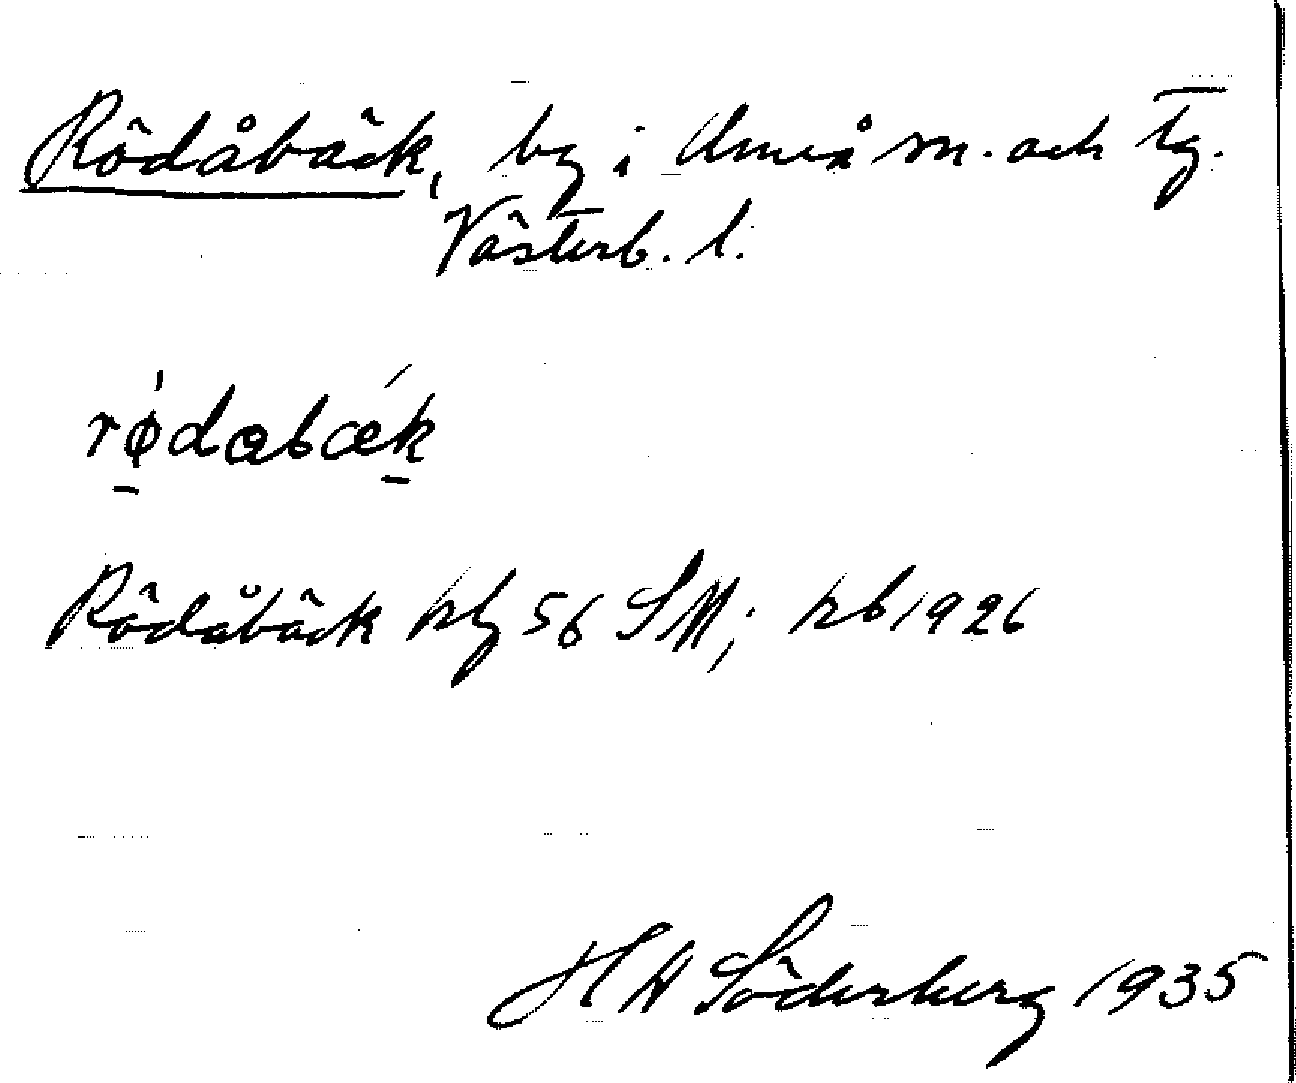 Rödåbäck, by i Umeå sn. och tg.
Västerb. l.
rødabæk
Rödåbäck kbl 56 SM; rb 1926
H W Söderberg 1935